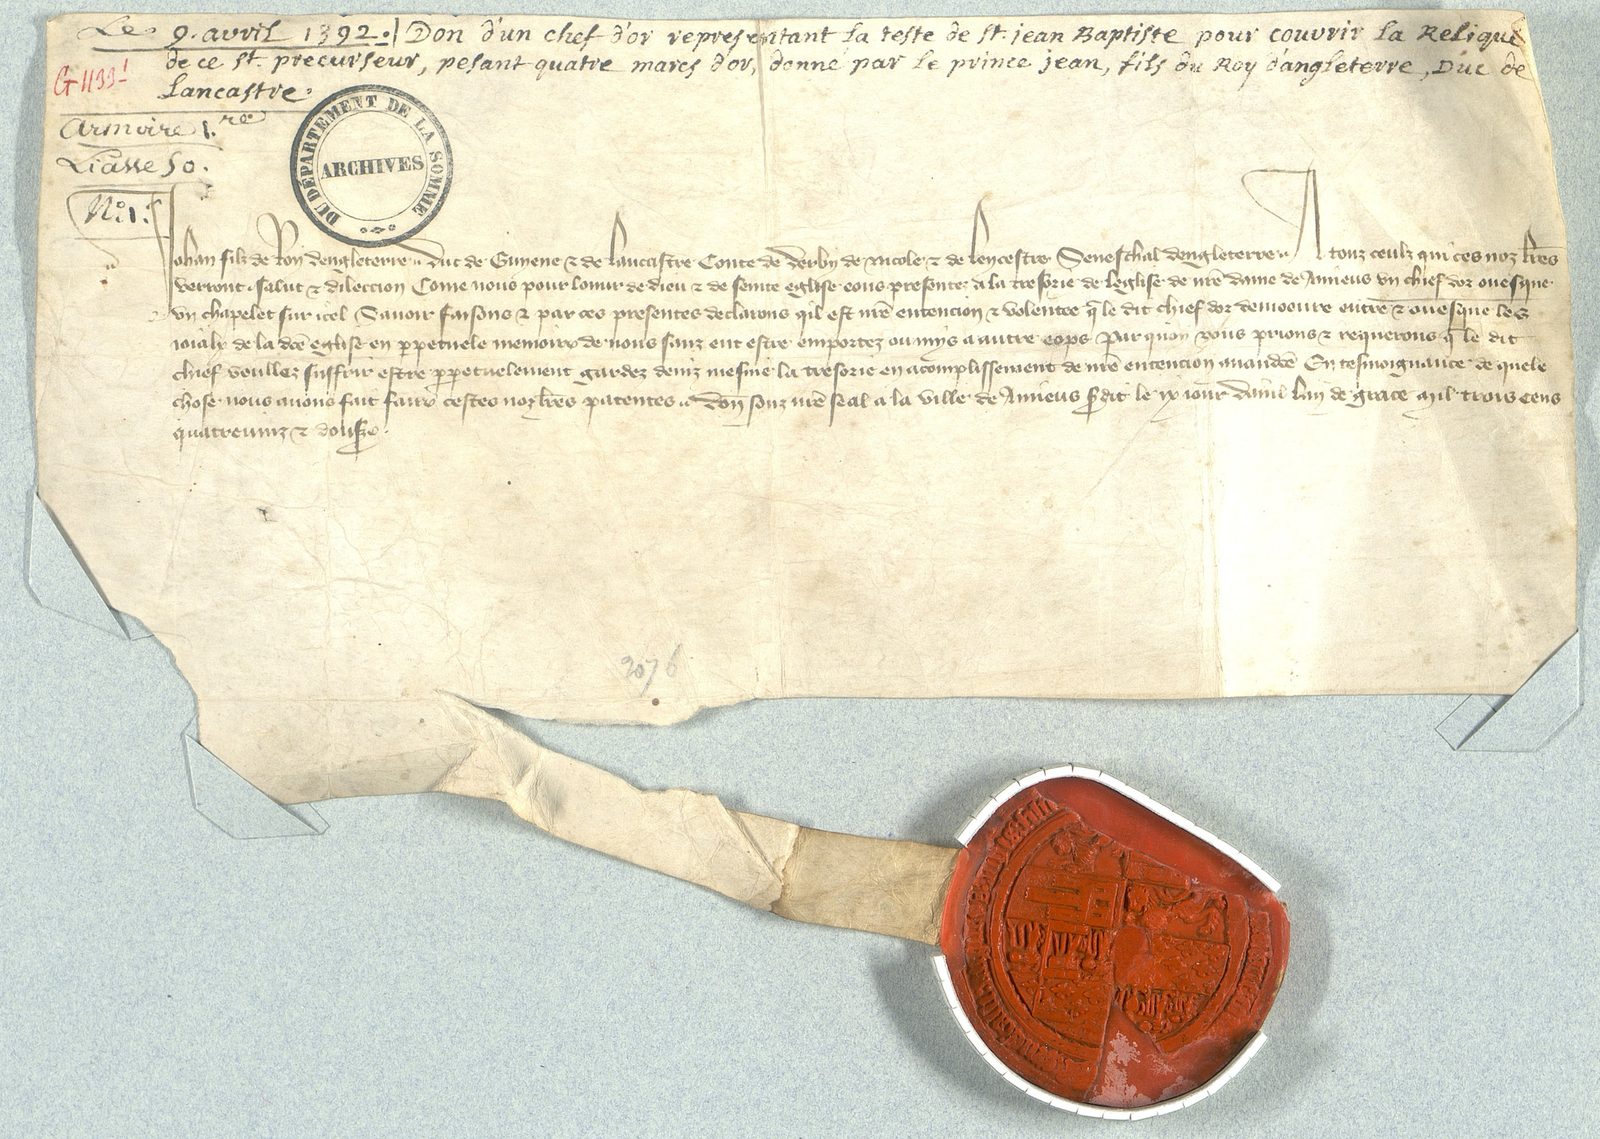 Le 9. avril 1392. Don d'un chef d'or representant la teste de st. jean Baptiste pour couvrir la Relique
de ce st. precurseur, pesant quatre marcs d'or, donné par le prince jean, fils du Roy d'angleterre, Duc de
Lancastre.
G 1133
Armoire 1.re
Liasse 50.
N.o 1.
DU DÉPARTEMENT DE LA SOMME
ARCHIVES
Johan filz de Roy dengleterre Duc de Guyene & de Lancastre Conte de Derby de Nicole & de Leycestre Seneschal dengleterre A touz ceulx qui ces noz lres
verront salut & dileccion Come nous pour lonur de dieu & de seinte eglise eons presente a la tresorie de leglise de nre dame de Amieus un chief dor ovesque
un chapelet sur icel Savoir faisons & par ces presentes declarons qil est nre entencion & volentee q le dit chief dor demoeure entre & ovesque les
joialx de la dce eglise en ppetuele memoire de nous sanz ent estre emportez ou mys a autre eops Par quoy vous prions & requerons q le dit
chief veullez suffrir estre ppetuelement gardez deinz mesme la tresorie en acomplissement de nre entencion avandce En tesmoignance de quele
chose nous avons fait faire cestes noz lres patentes Don souz nre seal a la ville de Amieus sdit le ix jour davril lan de grace mil trois cens
quatrevinz & dousze.
2076